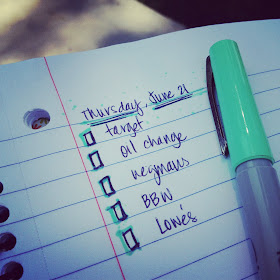 Thursday, June 21
target
oil change
wegmans
BBW
Lowe's